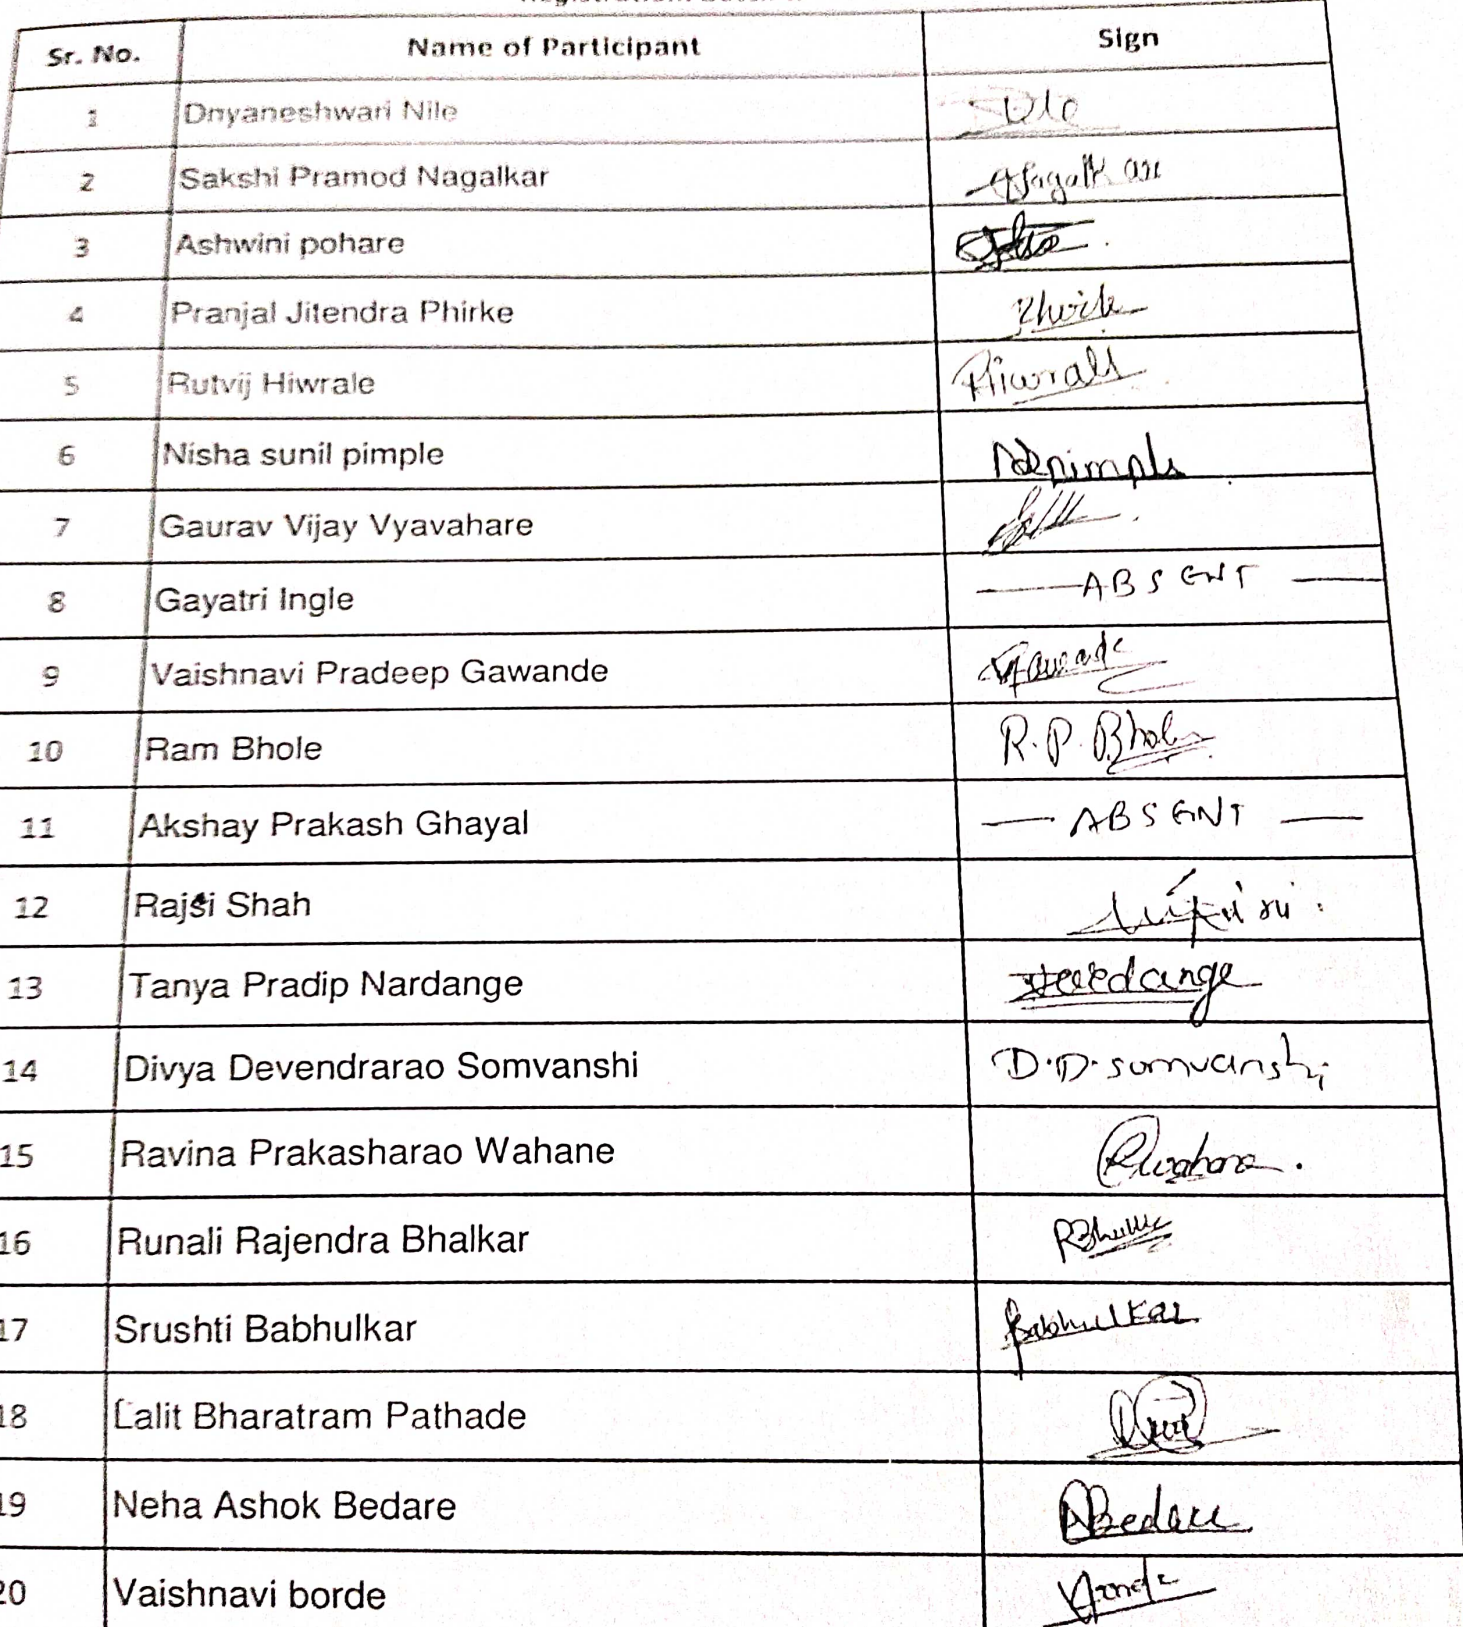 Sr. No. Name of Participant Sign
1 Dnyaneshwari Nile
2 Sakshi Pramod Nagalkar Nagalkar
3 Ashwini pohare
4 Pranjal Jitendra Phirke Phirke
5 Rutvij Hiwrale Hiwrale
6 Nisha sunil pimple
7 Gaurav Vijay Vyavahare
8 Gayatri Ingle ABSENT
9 Vaishnavi Pradeep Gawande
10 Ram Bhole R. P. Bhole
11 Akshay Prakash Ghayal ABSENT
12 Rajsi Shah
13 Tanya Pradip Nardange
14 Divya Devendrarao Somvanshi D.D. somvanshi
15 Ravina Prakasharao Wahane
16 Runali Rajendra Bhalkar
17 Srushti Babhulkar Babhulkar
18 Lalit Bharatram Pathade
19 Neha Ashok Bedare
20 Vaishnavi borde